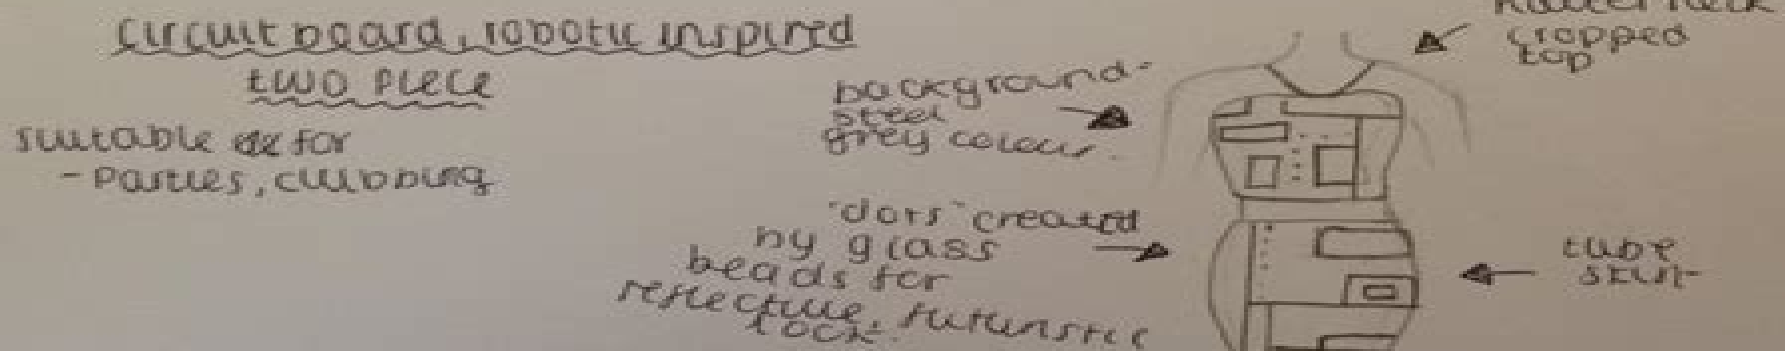 circuit board, robotic inspired
two piece
suitable for
- Parties, clubbing
background-
steel
grey colour.
"dots" created
by glass
beads for
reflective, futuristic
look.
halter neck
cropped
top
tube
skirt